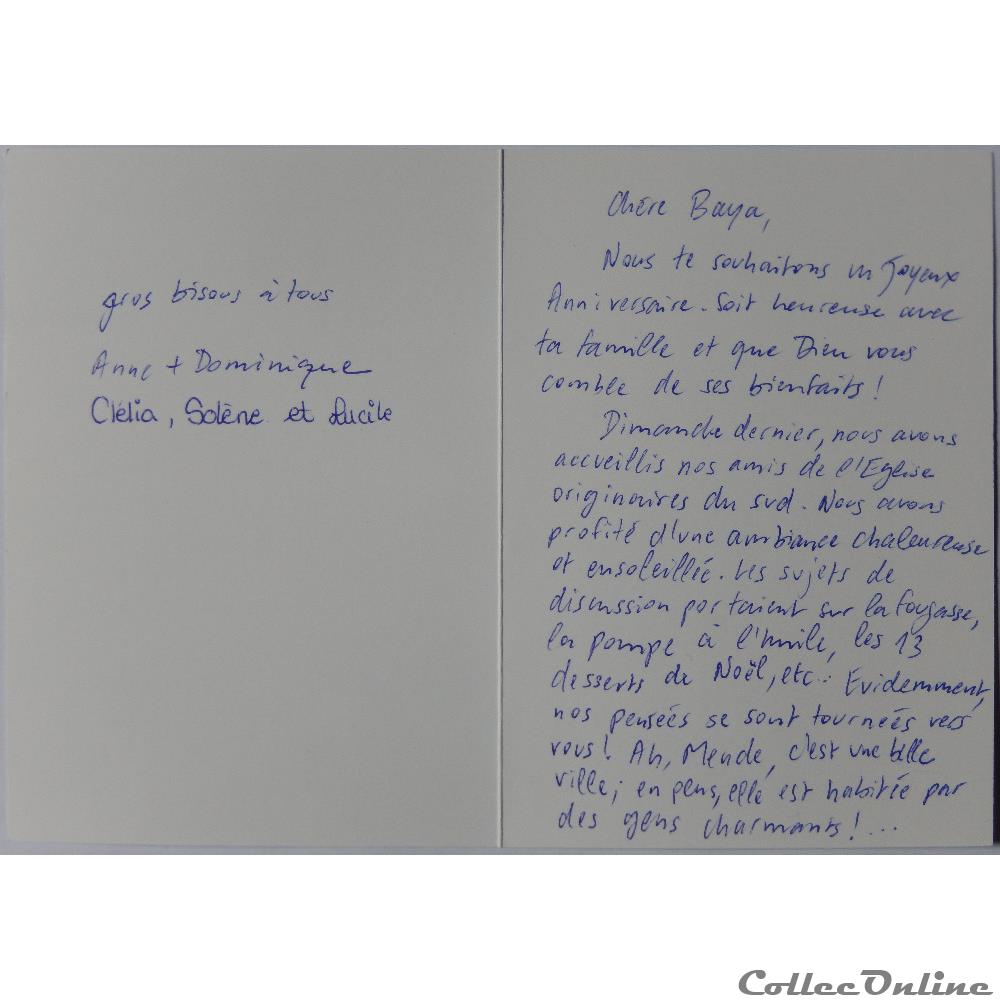 gros bisous à tous
Anne + Dominique
Clélia, Solène et Lucile
Chère Baya,
Nous te souhaitons un Joyeux
Anniversaire. Soit heureuse avec
ta famille et que Dieu vous
comble de ses bienfaits !
Dimanche dernier, nous avons
accueillis nos amis de l'Eglise
originaires du sud. Nous avons
profité d'une ambiance chaleureuse
et ensoleillée. Les sujets de
discussion portaient sur la fougasse,
la pompe à l'huile, les 13
desserts de Noël, etc... Evidemment,
nos pensées se sont tournées vers
vous ! Ah, Mende, c'est une belle
ville ; en plus, elle est habitée par
des gens charmants ! ...
CollecOnline